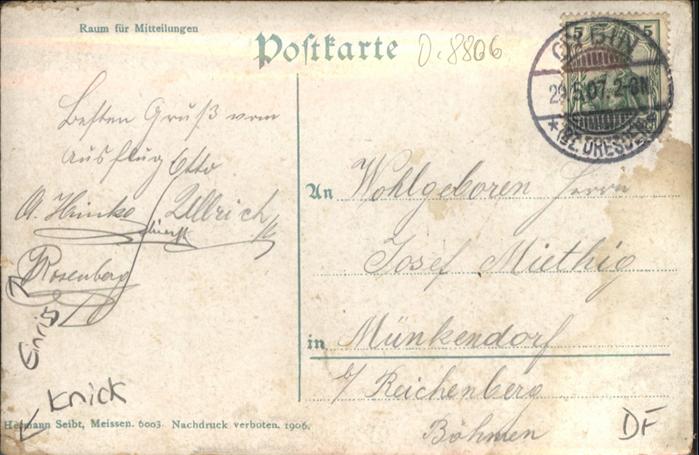 Raum für Mitteilungen
Postkarte
0.8806
5 5
29.5.07. 2-3N
* (BZ. DRESDEN)
Besten Gruß vom
Ausflug Otto
Ullrich
Rosenberg
An Wohlgeboren Herrn
Josef Miethig
in Münkendorf
b/ Reichenberg
Böhmen
Einriß
Knick
DF
Hermann Seibt, Meissen. 6003. Nachdruck verboten. 1906.